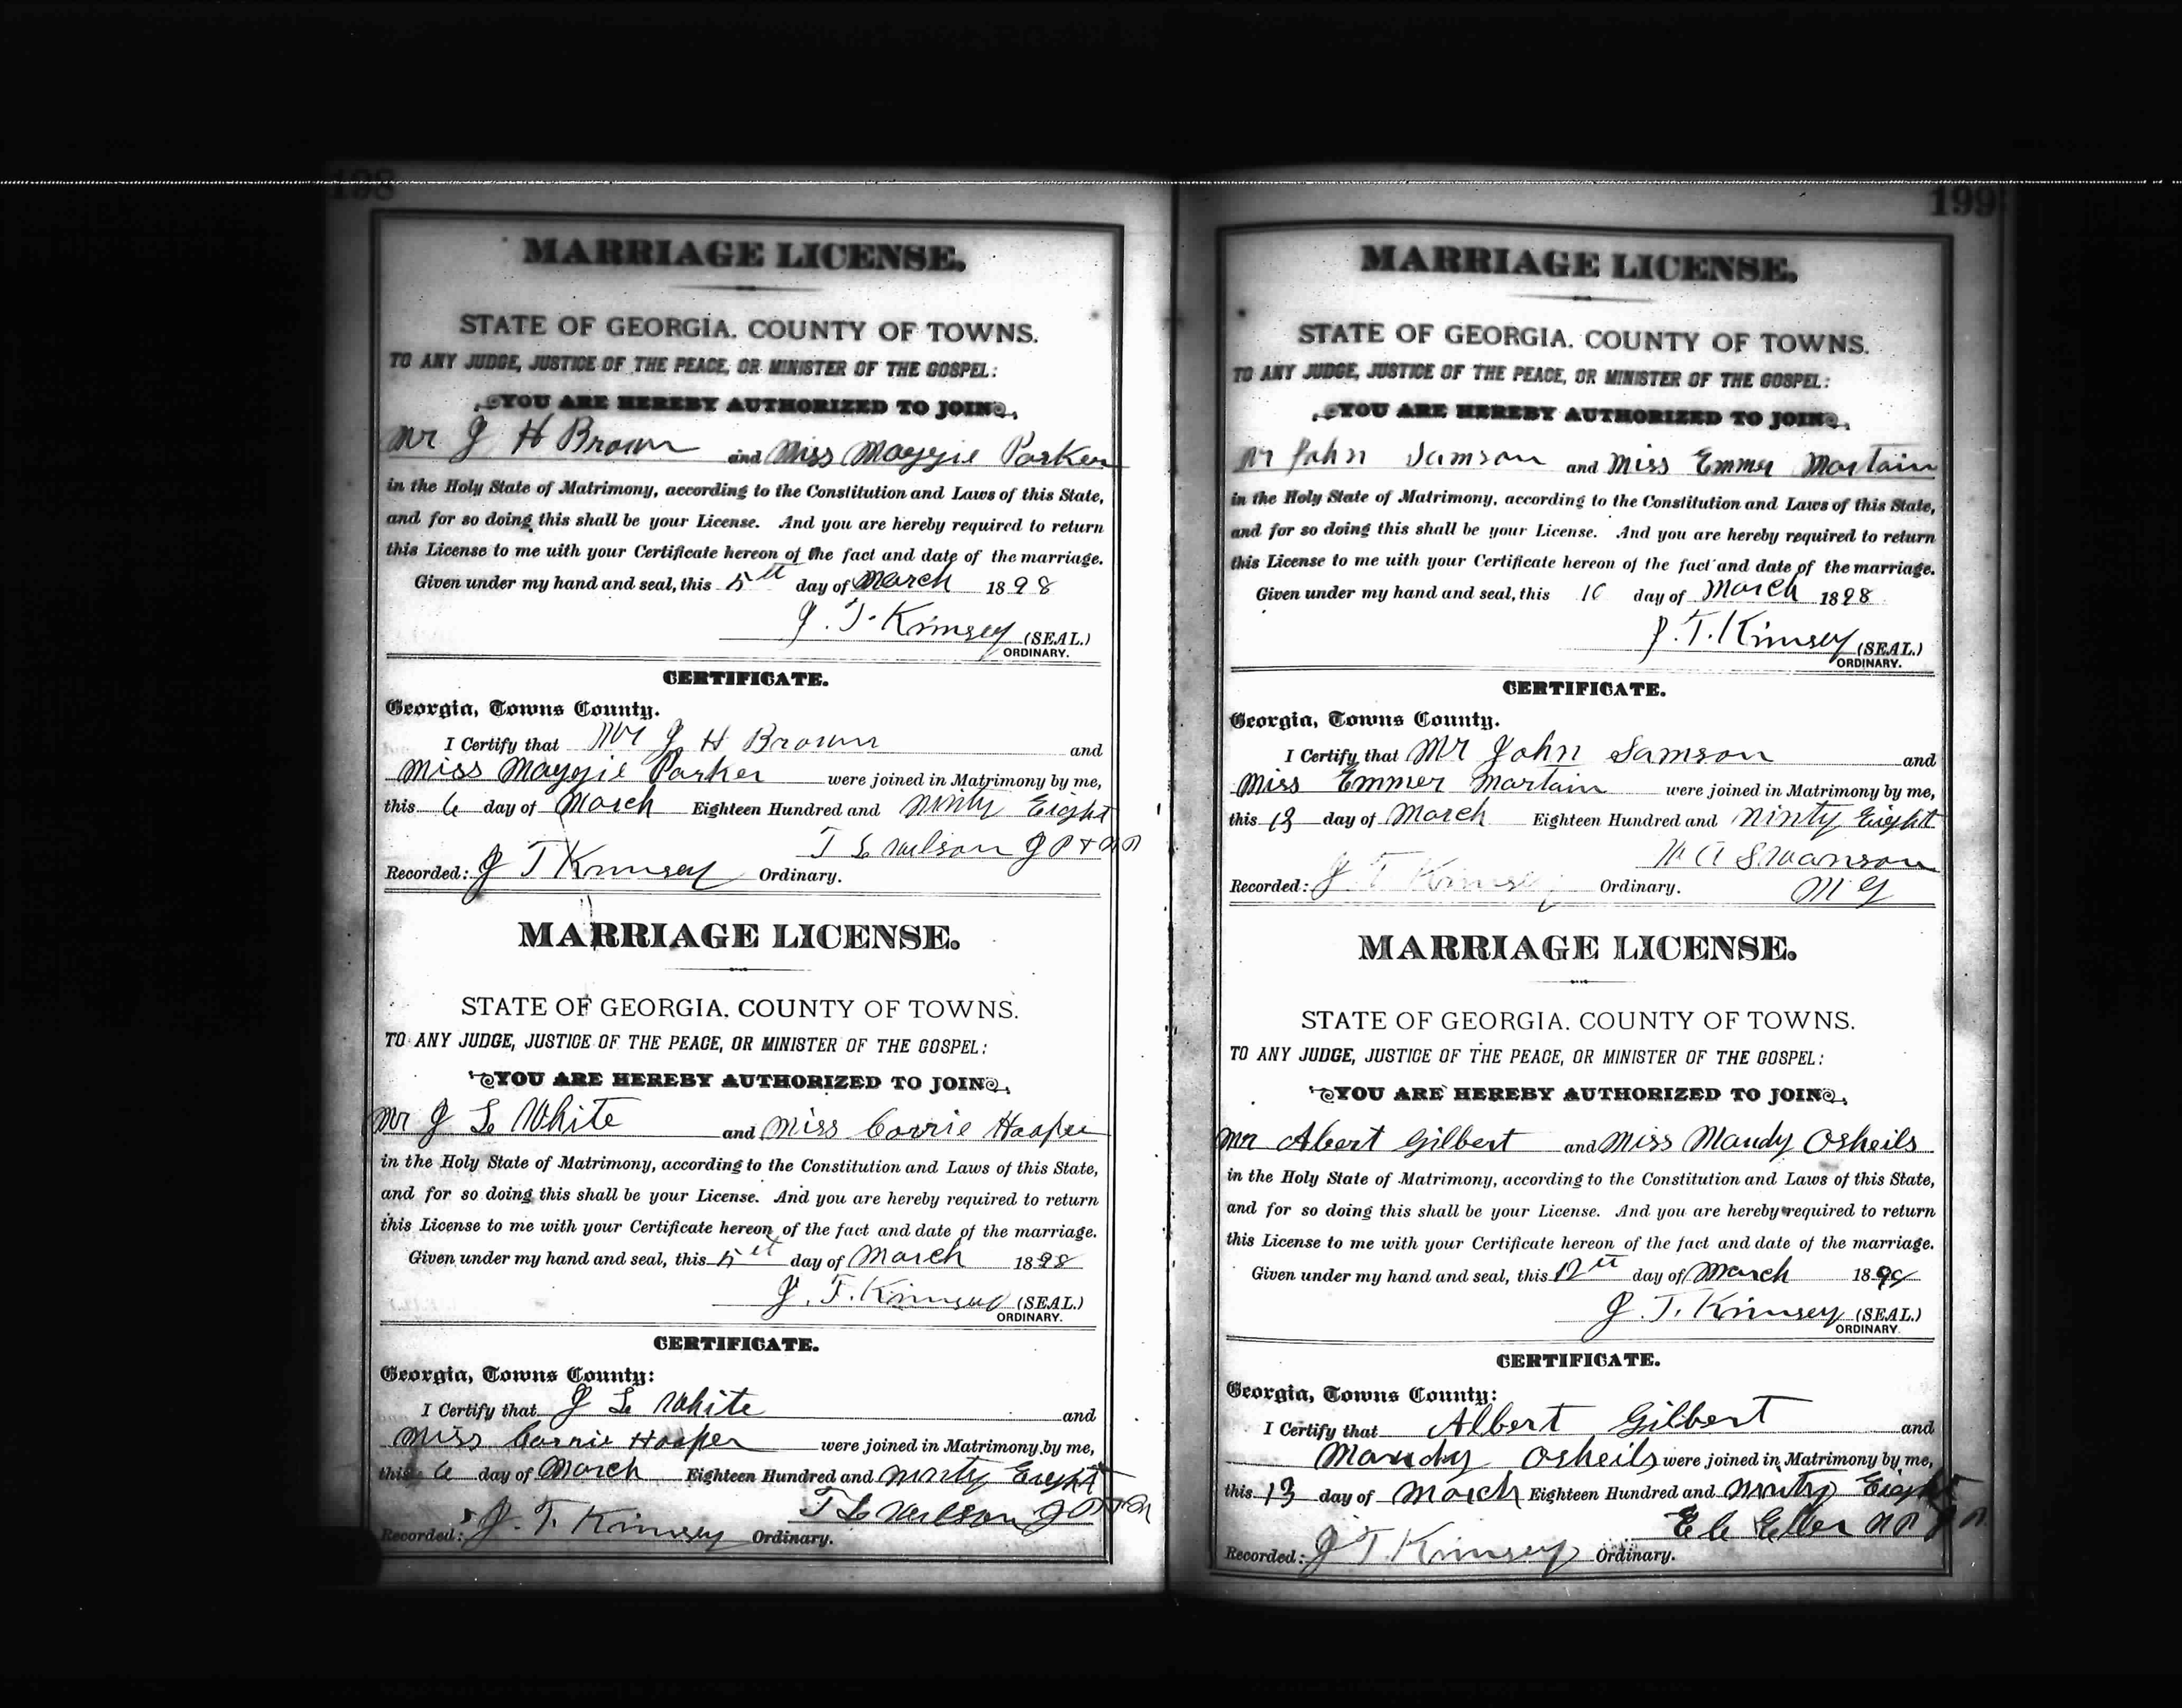 198
MARRIAGE LICENSE.
STATE OF GEORGIA. COUNTY OF TOWNS.
TO ANY JUDGE, JUSTICE OF THE PEACE, OR MINISTER OF THE GOSPEL:
YOU ARE HEREBY AUTHORIZED TO JOIN
Mr J H Brown and Miss Maggie Parker
in the Holy State of Matrimony, according to the Constitution and Laws of this State,
and for so doing this shall be your License. And you are hereby required to return
this License to me uith your Certificate hereon of the fact and date of the marriage.
Given under my hand and seal, this 5th day of March 1898
J. T. Kimsey (SEAL.)
ORDINARY.
CERTIFICATE.
Georgia, Towns County.
I Certify that Mr J H Brown and
Miss Maggie Parker were joined in Matrimony by me,
this 6 day of March Eighteen Hundred and Ninty Eight
T L Wilson J P
Recorded: J T Kimsey Ordinary.
MARRIAGE LICENSE.
STATE OF GEORGIA. COUNTY OF TOWNS.
TO ANY JUDGE, JUSTICE OF THE PEACE, OR MINISTER OF THE GOSPEL:
YOU ARE HEREBY AUTHORIZED TO JOIN
Mr J L White and Miss Corrie Hooper
in the Holy State of Matrimony, according to the Constitution and Laws of this State,
and for so doing this shall be your License. And you are hereby required to return
this License to me with your Certificate hereon of the fact and date of the marriage.
Given under my hand and seal, this 5th day of March 1898
J. T. Kimsey (SEAL.)
ORDINARY.
CERTIFICATE.
Georgia, Towns County:
I Certify that J L White and
Miss Corrie Hooper were joined in Matrimony by me,
this 6 day of March Eighteen Hundred and Ninty Eight
T L Wilson J P
Recorded: J. T. Kimsey Ordinary.
199
MARRIAGE LICENSE.
STATE OF GEORGIA. COUNTY OF TOWNS.
TO ANY JUDGE, JUSTICE OF THE PEACE, OR MINISTER OF THE GOSPEL:
YOU ARE HEREBY AUTHORIZED TO JOIN
Mr John Samson and Miss Emmer Martain
in the Holy State of Matrimony, according to the Constitution and Laws of this State,
and for so doing this shall be your License. And you are hereby required to return
this License to me with your Certificate hereon of the fact and date of the marriage.
Given under my hand and seal, this 10 day of March 1898
J. T. Kimsey (SEAL.)
ORDINARY.
CERTIFICATE.
Georgia, Towns County.
I Certify that Mr John Samson and
Miss Emmer Martain were joined in Matrimony by me,
this 13 day of March Eighteen Hundred and Ninty Eight
W A Swanson
Recorded: J T Kimsey Ordinary. M G
MARRIAGE LICENSE.
STATE OF GEORGIA. COUNTY OF TOWNS.
TO ANY JUDGE, JUSTICE OF THE PEACE, OR MINISTER OF THE GOSPEL:
YOU ARE HEREBY AUTHORIZED TO JOIN
Mr Abert Gilbert and Miss Mandy Osheils
in the Holy State of Matrimony, according to the Constitution and Laws of this State,
and for so doing this shall be your License. And you are hereby required to return
this License to me with your Certificate hereon of the fact and date of the marriage.
Given under my hand and seal, this 12th day of March 18
J. T. Kimsey (SEAL.)
ORDINARY.
CERTIFICATE.
Georgia, Towns County:
I Certify that Albert Gilbert and
Mandy Osheils were joined in Matrimony by me,
this 13 day of March Eighteen Hundred and Ninty Eight
E C Eller N P
Recorded: J T. Kimsey Ordinary.